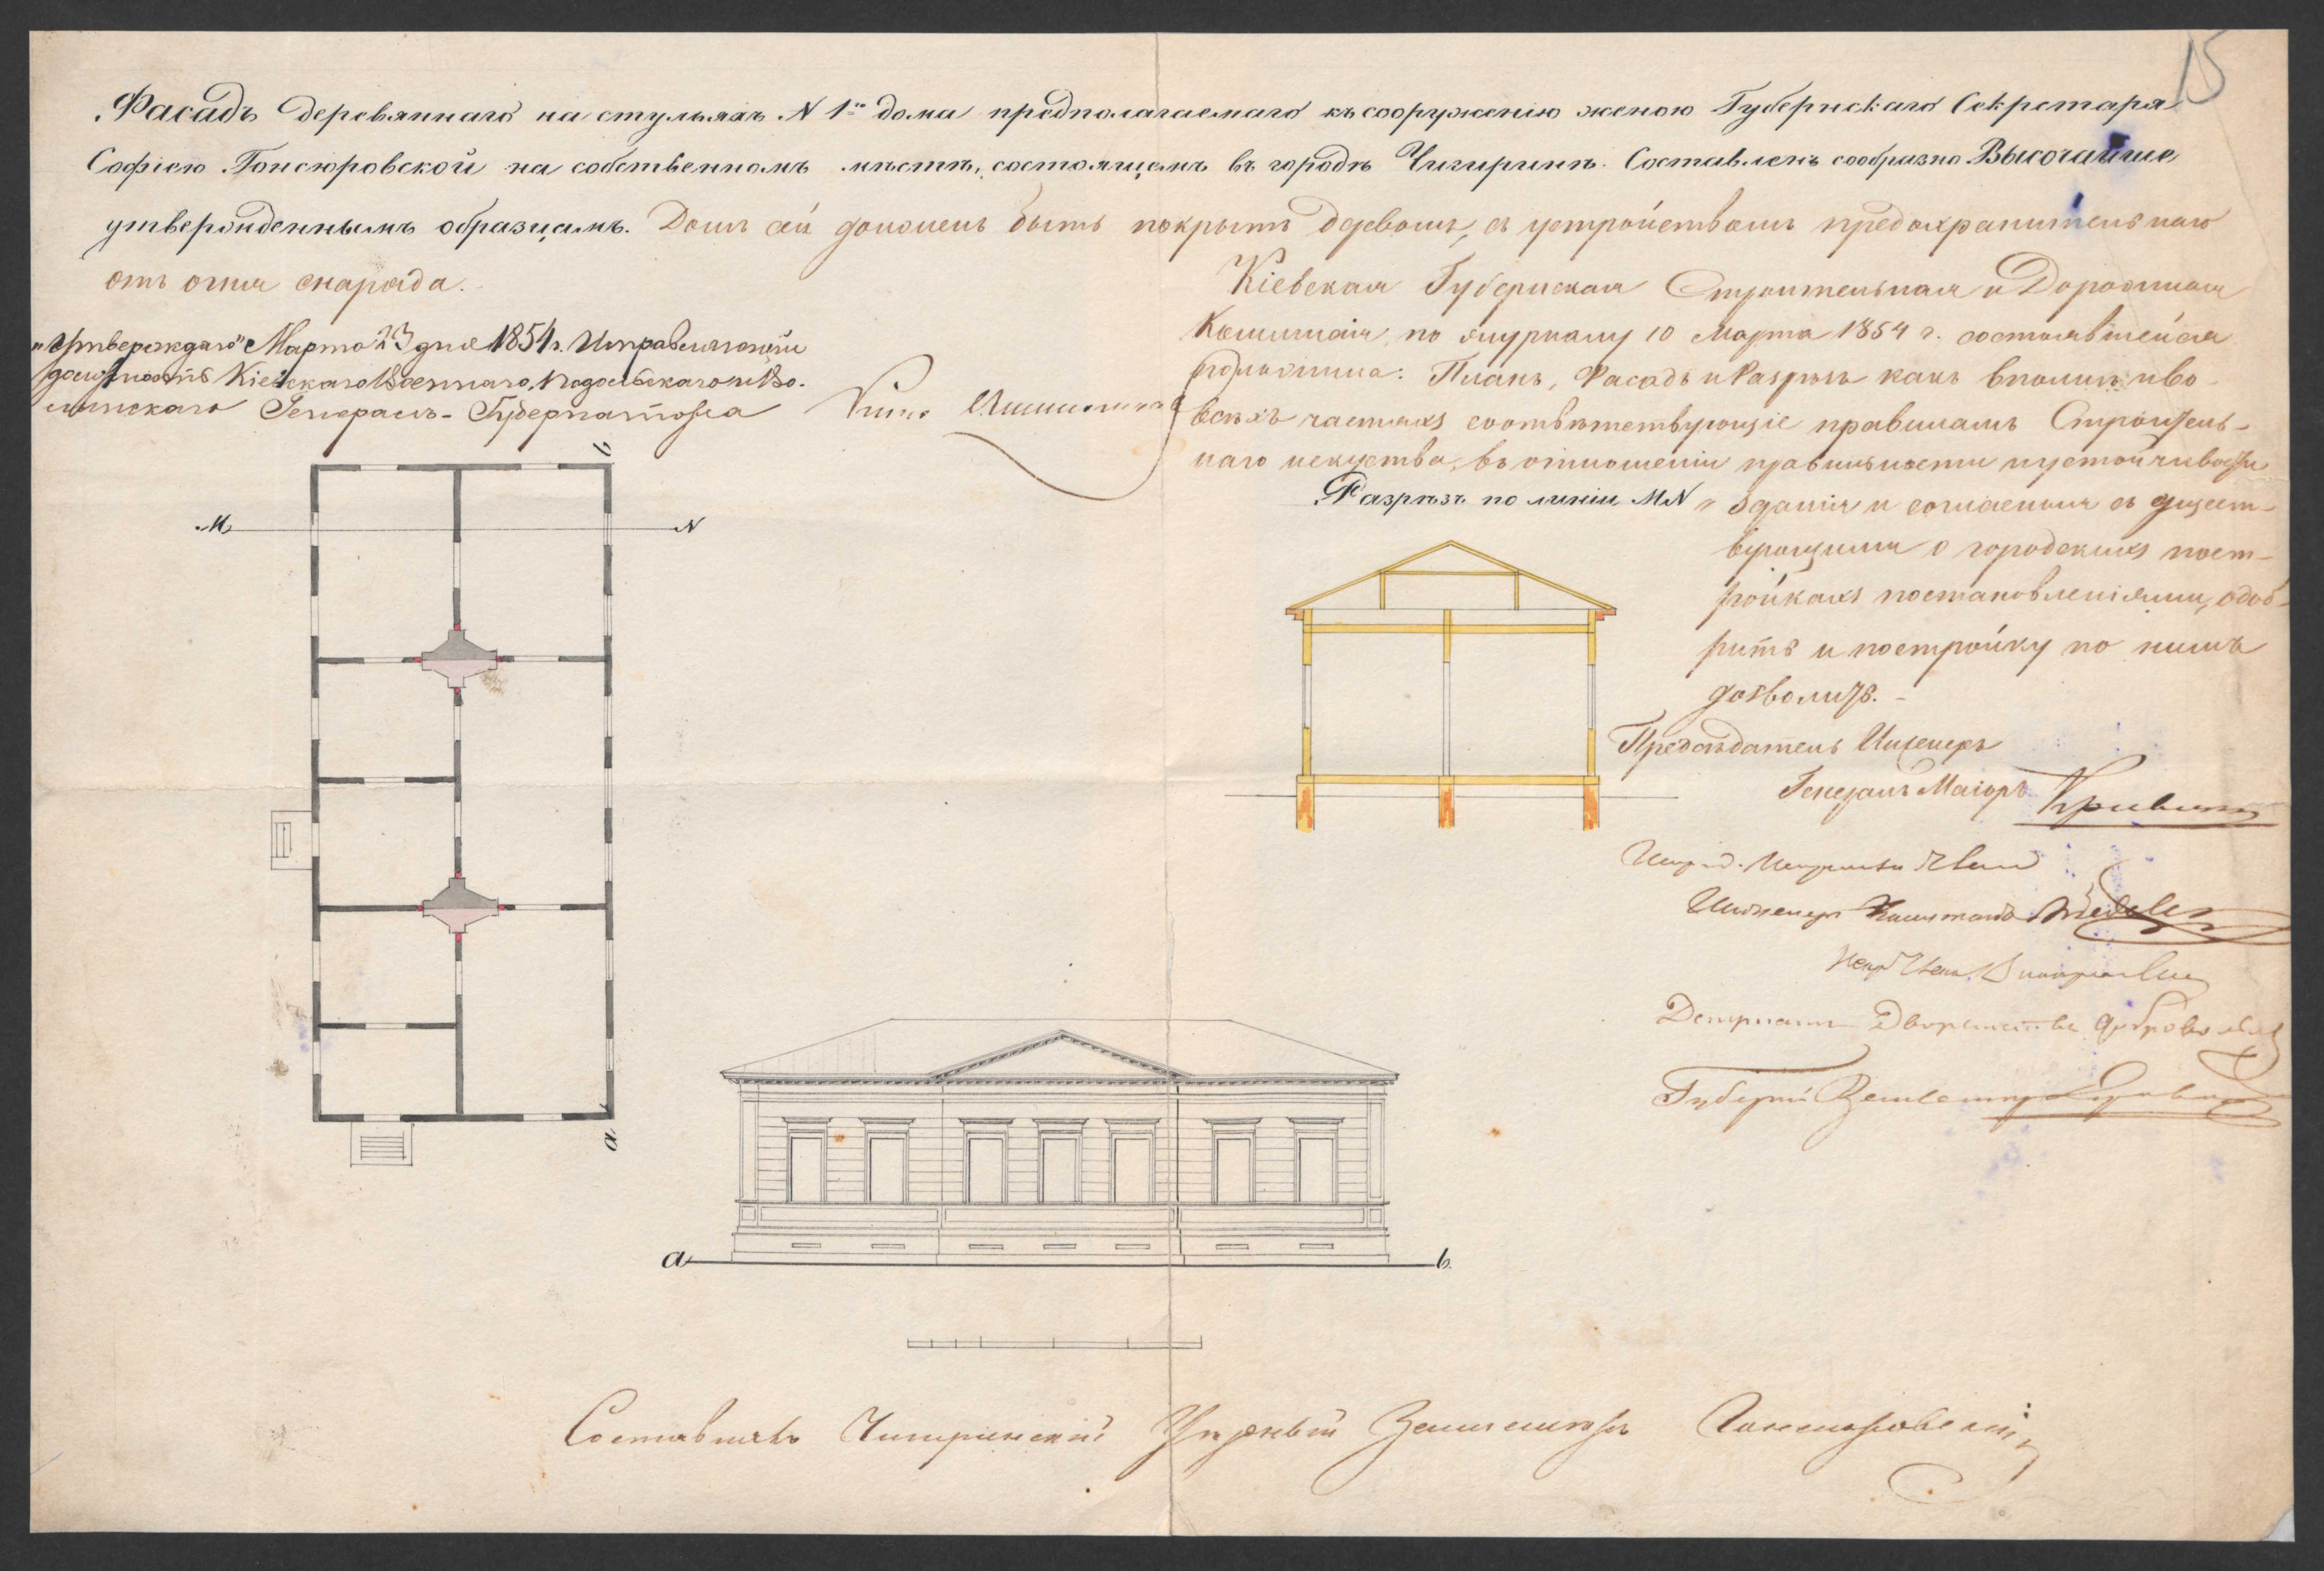 15
Фасадъ деревяннаго на стульяхъ N 1го дома предполагаемаго къ сооруженію женою Губернскаго Секретаря
Софіею Гонсюровской на собственномъ мѣстѣ, состоящемъ въ городѣ Чигиринѣ. Составленъ сообразно Высочайше
утвержденнымъ образцамъ. Домъ сей долженъ быть покрытъ деревомъ, съ устройствомъ предохранительнаго
отъ огня снаряда.
„Утверждаю" Марта 23 дня 1854 г. Исправляющій
должность Кіевскаго Военнаго, Подольскаго и Во-
лынскаго Генералъ-Губернатора
Кіевская Губернская Строительная и Дорожная
Коммисія, по журналу 10 Марта 1854 г. состоявшемуся
положила: Планъ, Фасадъ и Разрѣзъ какъ вполнѣ и во
всѣхъ частяхъ соотвѣтствующіе правиламъ Строитель-
наго искуства, въ отношеніи правильности и устойчивости
зданія и согласныя съ сущест-
вующими о городскихъ пост-
ройкахъ постановленіями, одоб-
рить и постройку по нимъ
дозволить.
Разрѣзъ по линіи MN
M N
b
a
Предсѣдатель Инженеръ
Генералъ Маіоръ
Инженеръ Капитанъ
Депутатъ Дворянства
Губерн. Землемѣръ
a b
Составлялъ Чигиринскій Уѣздный Землемѣръ Гонсюровскій